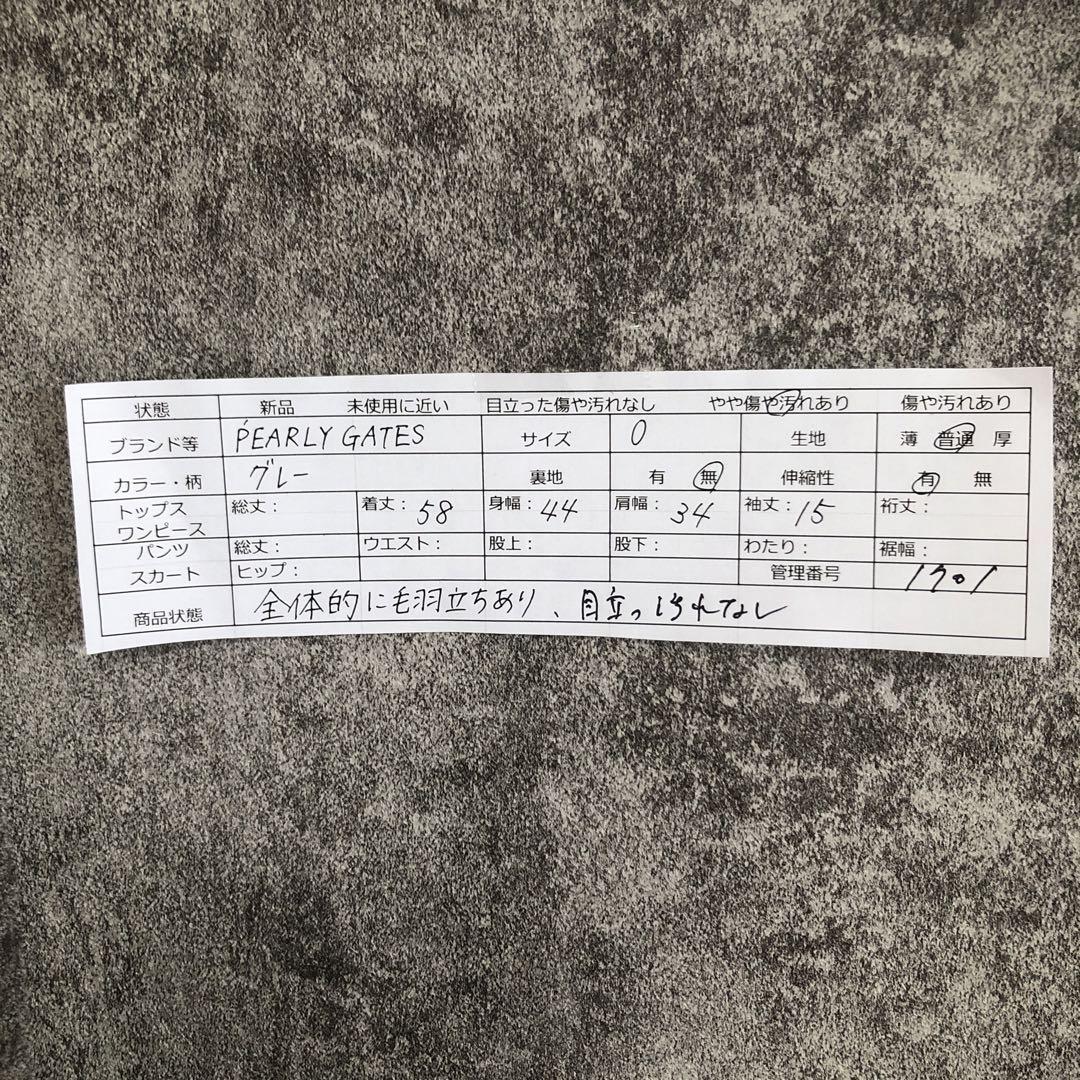 状態 新品 未使用に近い 目立った傷や汚れなし やや傷や汚れあり 傷や汚れあり
ブランド等 PEARLY GATES サイズ 0 生地 薄 普通 厚
カラー・柄 グレー 裏地 有 無 伸縮性 有 無
トップス ワンピース 総丈: 着丈: 58 身幅: 44 肩幅: 34 袖丈: 15 裄丈:
パンツ 総丈: ウエスト: 股上: 股下: わたり: 裾幅:
スカート ヒップ: 管理番号 1701
商品状態 全体的に毛羽立ちあり、目立つ汚れなし